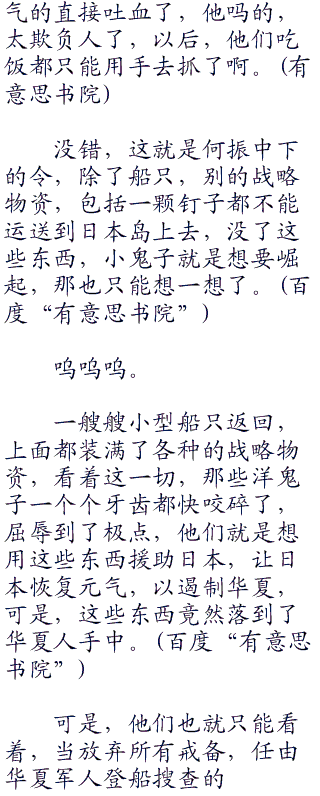 气的直接吐血了，他吗的，
太欺负人了，以后，他们吃
饭都只能用手去抓了啊。(有
意思书院)
没错，这就是何振中下
的令，除了船只，别的战略
物资，包括一颗钉子都不能
运送到日本岛上去，没了这
些东西，小鬼子就是想要崛
起，那也只能想一想了。(百
度“有意思书院”)
呜呜呜。
一艘艘小型船只返回，
上面都装满了各种的战略物
资，看着这一切，那些洋鬼
子一个个牙齿都快咬碎了，
屈辱到了极点，他们就是想
用这些东西援助日本，让日
本恢复元气，以遏制华夏，
可是，这些东西竟然落到了
华夏人手中。(百度“有意思
书院”)
可是，他们也就只能看
着，当放弃所有戒备，任由
华夏军人登船搜查的